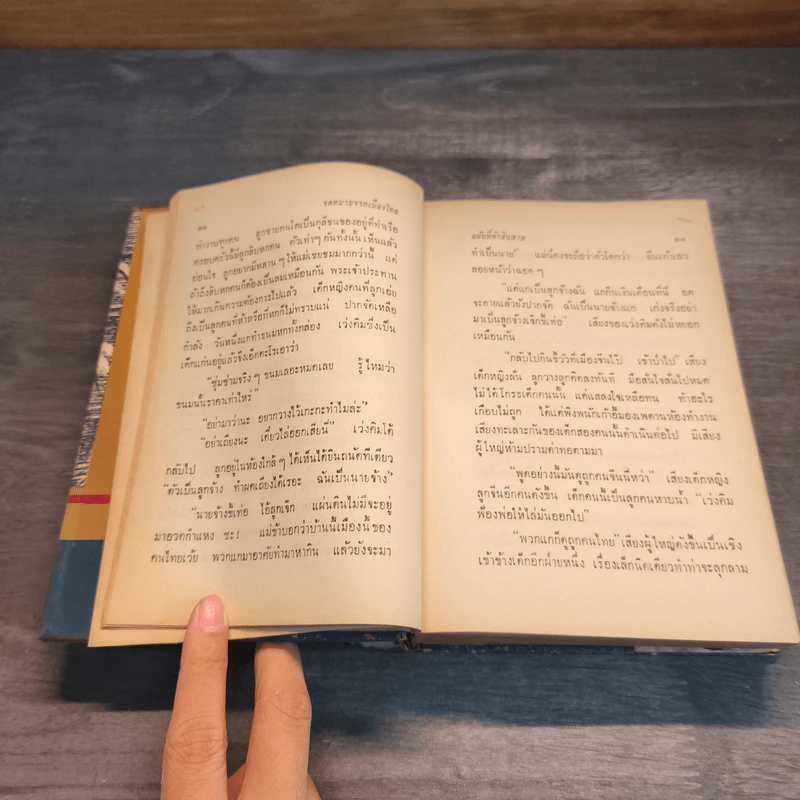 จดหมายจากเมืองไทย
ทำงานทุกคน ลูกชายคนโตเป็นกุลีขนของอยู่ที่ท่าเรือ
ครอบครัวนั้นมีลูกสิบหกคน ตัวเท่าๆ กันทั้งนั้น เห็นแล้ว
อ่อนใจ ลูกอยากมีหลานๆ ให้แม่เชยชมมากกว่านี้ แต่
ถ้าถึงสิบหกคนก็ต้องเป็นลมเหมือนกัน พระเจ้าประทาน
ให้มากเกินความต้องการไปแล้ว เด็กหญิงคนที่ลูกเอ่ย
ถึงเป็นลูกคนที่ห้าหรือที่หกก็ไม่ทราบแน่ ปากจัดเหลือ
กำลัง วันหนึ่งแกทำขนมหกทั้งกล่อง เว่งคิมซึ่งเป็น
เด็กแก่นอยู่แล้วจึงเอ็ดตะโรเอาว่า
"ซุ่มซ่ามจริงๆ ขนมเลอะหมดเลย รู้ไหมว่า
ขนมนั้นราคาเท่าไหร่"
"อย่ามาว่านะ อยากวางไว้เกะกะทำไมล่ะ"
"อย่าเถียงนะ เดี๋ยวไล่ออกเสียนี่" เว่งคิมโต้
กลับไป ลูกอยู่ในห้องใกล้ๆ ได้เห็นได้ยินถนัดทีเดียว
"ตัวเป็นลูกจ้าง ทำผิดเถียงได้เรอะ ฉันเป็นนายจ้าง"
"นายจ้างขี้เท่อ ไอ้ลูกเจ๊ก แผ่นดินไม่มีจะอยู่
มาอวดกำแหง ชะ! แม่ข้าบอกว่าบ้านนี้เมืองนี้ของ
คนไทยเว้ย พวกแกมาอาศัยทำมาหากิน แล้วยังจะมา
ฉบับที่ห้าสิบสาม
ทำเป็นนาย" แม่นี่คงจะถือว่าตัวโตกว่า ยืนเท้าเอว
ลอยหน้าว่าฉอดๆ
"แต่แกเป็นลูกจ้างฉัน แกกินเงินเดือนที่นี่ อด
จะตายแล้วยังปากจัด ฉันเป็นนายจ้างแก เก่งจริงอย่า
มาเป็นลูกจ้างเจ๊กขี้เท่อ" เสียงของเว่งคิมดังไม่หยอก
เหมือนกัน
"กลับไปกินขี้วัวที่เมืองจีนไป๊ เช้าป่าไป" เสียง
เด็กหญิงลั่น ลูกวางลูกคิดลงทันที มือสั่นใจสั่นไปหมด
ไม่ได้โกรธเด็กคนนั้น แต่แสลงใจเหลือทน ทำอะไร
เกือบไม่ถูก ได้แต่พิงพนักเก้าอี้มองเพดานห้องทำงาน
เสียงทะเลาะกันของเด็กสองคนนั้นดำเนินต่อไป มีเสียง
ผู้ใหญ่ห้ามปรามด่าทอตามมา
"พูดอย่างนี้มันดูถูกคนจีนนี่หว่า" เสียงเด็กหญิง
ลูกจีนอีกคนดังขึ้น เด็กคนนี้เป็นลูกคนหาบน้ำ "เว่งคิม
ฟ้องพ่อให้ไล่มันออกไป"
"พวกแกก็ดูถูกคนไทย" เสียงผู้ใหญ่ดังขึ้นเป็นเชิง
เข้าข้างเด็กอีกฝ่ายหนึ่ง เรื่องเล็กนิดเดียวทำท่าจะลุกลาม